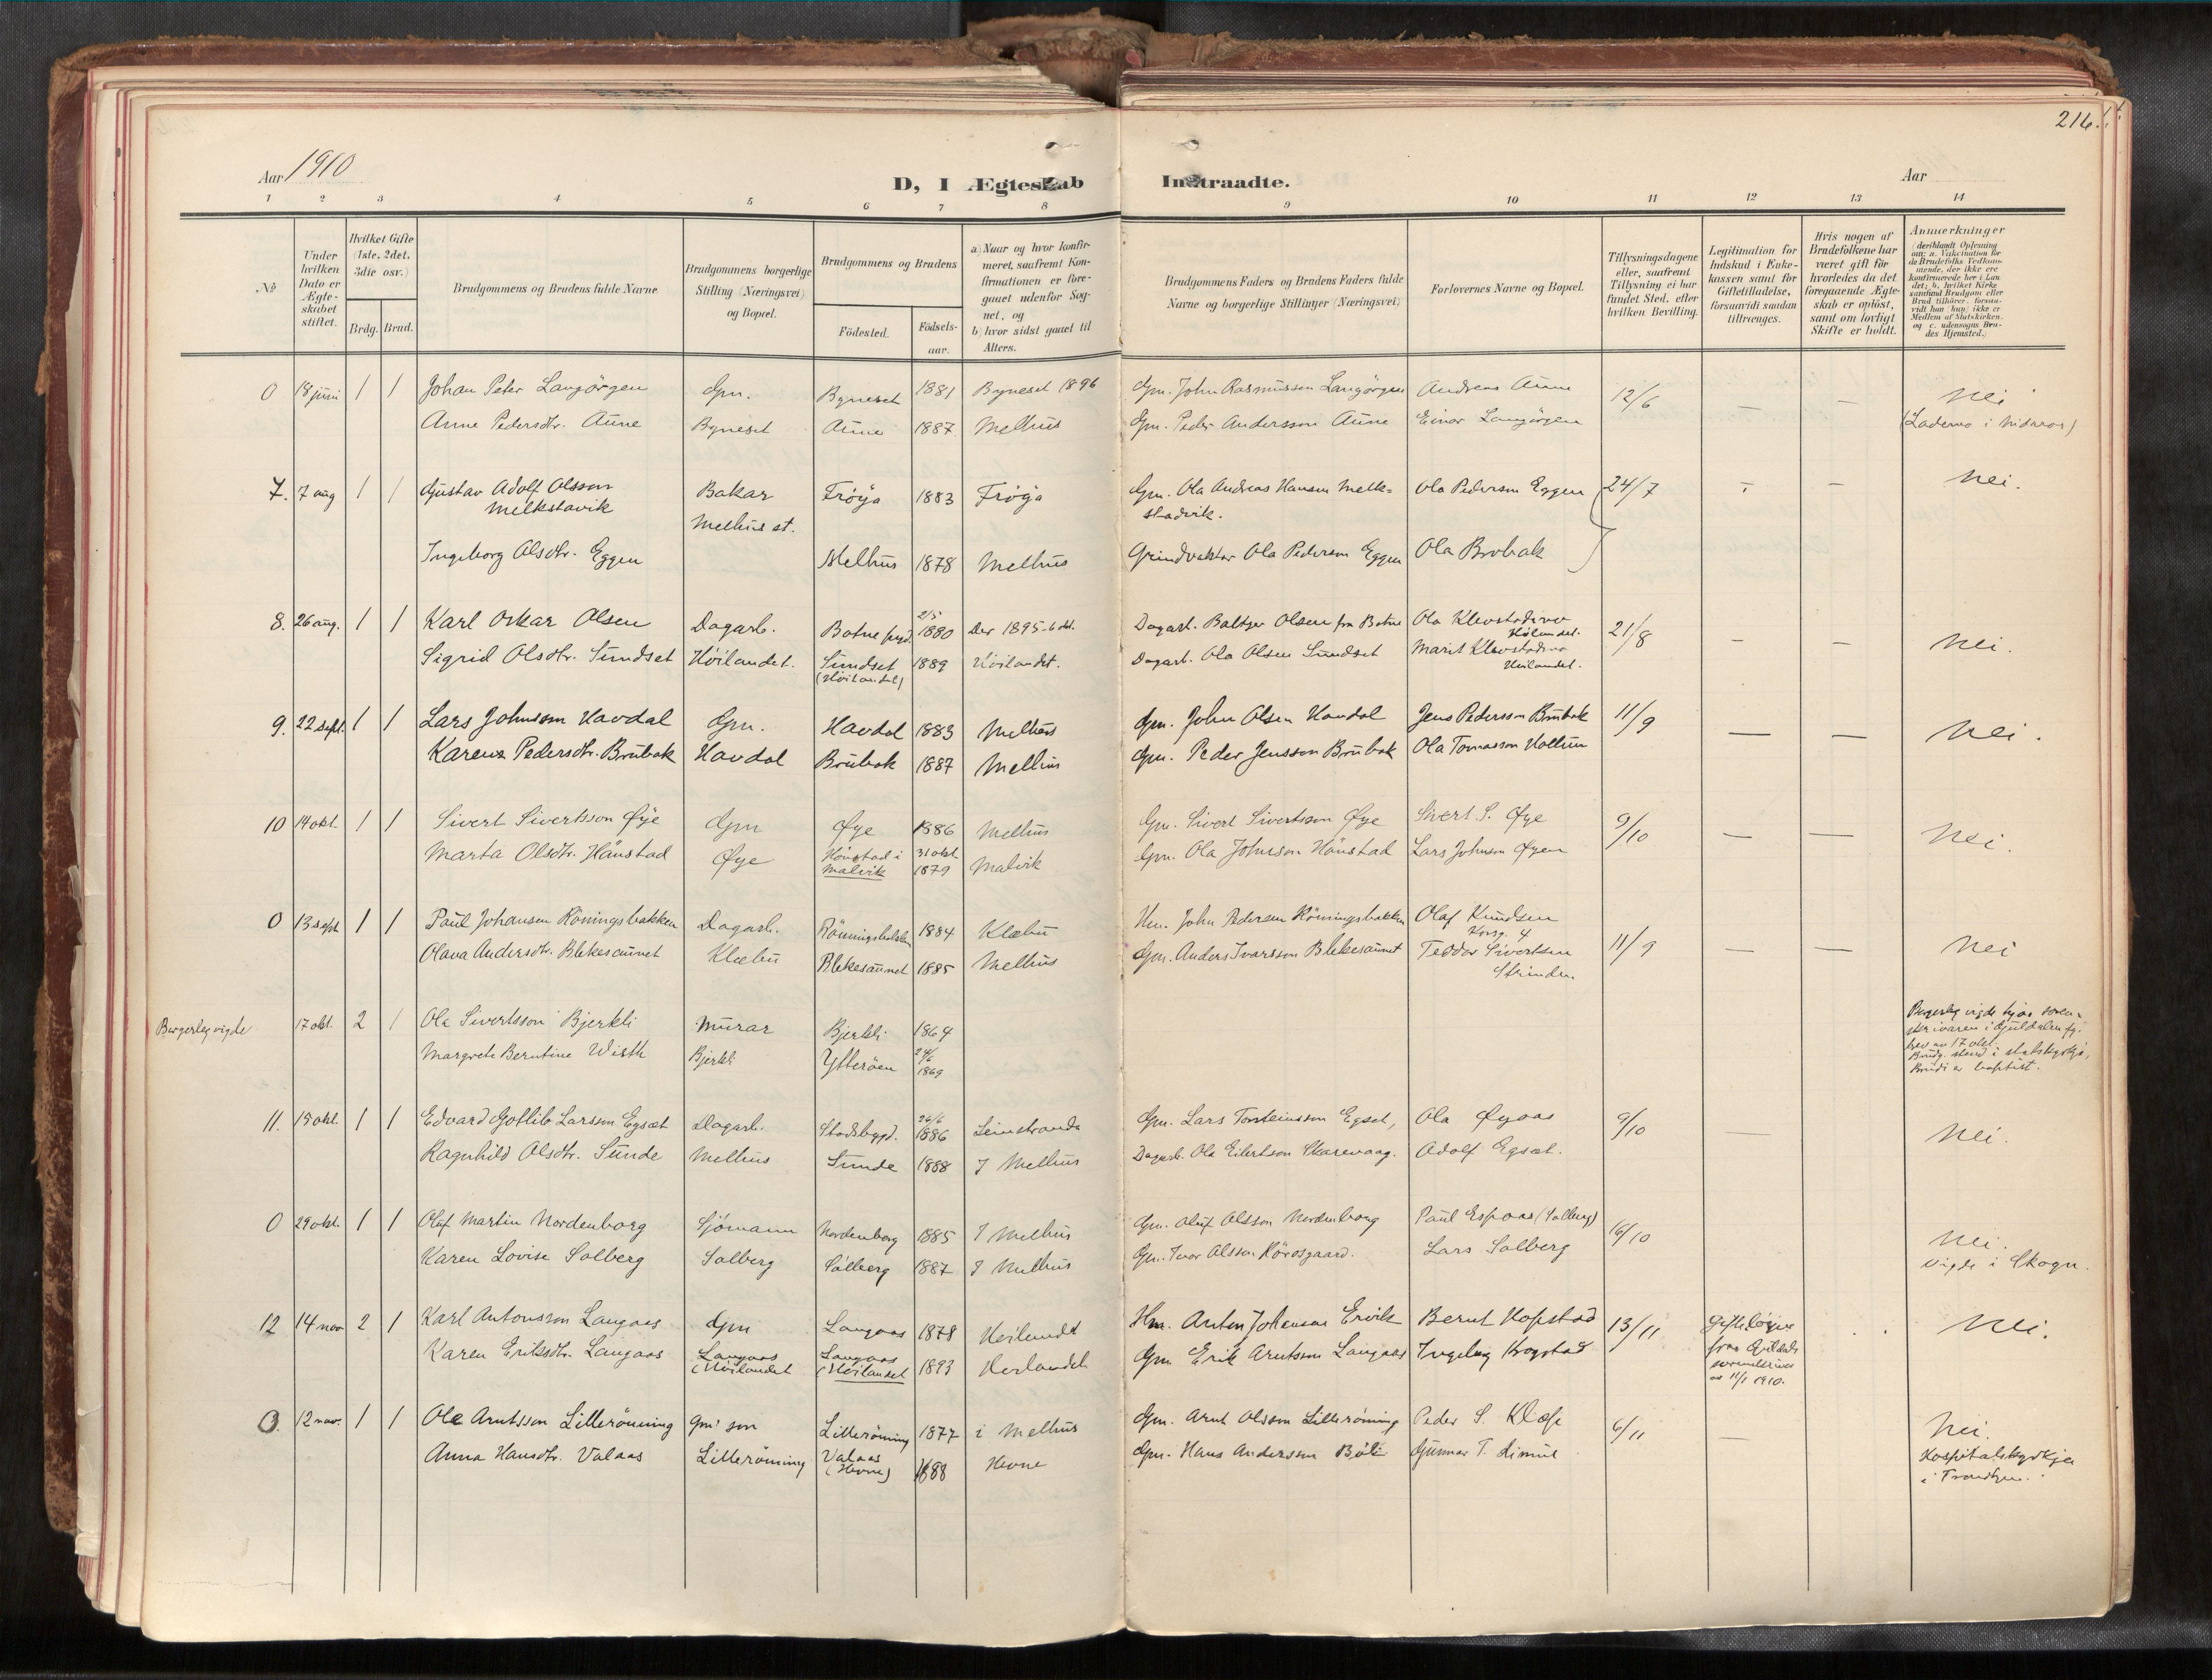 216.
Aar 1910
D, I Ægteskab Indtraadte.
Aar
1 2 3 4 5 6 7 8 9 10 11 12 13 14
No
Under hvilken Dato er Ægteskabet stiftet.
Hvilket Gifte (1ste, 2det, 3die osv.)
Brdg. Brud.
Brudgommens og Brudens fulde Navne
Brudgommens borgerlige Stilling (Næringsvei) og Bopæl.
Brudgommens og Brudens
Födested.
Födsels-aar.
a) Naar og hvor konfirmeret, saafremt Konfirmationen er foregaaet udenfor Sognet, og
b) hvor sidst gaaet til Alters.
Brudgommens Faders og Brudens Faders fulde Navne og borgerlige Stillinger (Næringsvei)
Forlovernes Navne og Bopæl.
Tillysningsdagene eller, saafremt Tillysning ei har fundet Sted, efter hvilken Bevilling.
Legitimation for Indskud i Enkekassen samt for Giftetilladelse, forsaavidt saadan tiltrænges.
Hvis nogen af Brudefolkene har været gift för hvorledes da det foregaaende Ægteskab er oplöst, samt om lovligt Skifte er holdt.
Anmærkninger
(deriblandt Oplysning om: a. Vakcination for de Brudefolks Vedkommende, der ikke ere konfirmerede her i Landet; b. hvilket Kirkesamfund Brudgom eller Brud tilhörer, forsaavidt han (hun) ikke er Medlem af Statskirken, og c. udensogns Brudes Hjemsted.)
0 18 juni 1 1 Johan Peter Langörgen Gm. Byneset 1881 Byneset 1896 Gm. John Rasmussen Langörgen Andreas Aune 12/6 — — Nei
Anne Pedersdtr. Aune Byneset Aune 1887 Melhus Gm. Peder Andersson Aune Einar Langörgen (Lademo i Nidaros)
7. 7 aug 1 1 Gustav Adolf Olsson Bakar Fröya 1883 Fröya Gm. Ola Andreas Hansen Melk= Ola Pedersen Eggen 24/7 — — Nei.
Melkstavik Melhus st. stadvik.
Ingeborg Olsdtr. Eggen Melhus 1878 Melhus Grindvaktar Ola Pedersen Eggen Ola Brobak
8. 26 aug. 1 1 Karl Oskar Olsen Dagarb. Botne 2/5 1880 Der 1895 Dagarb. Baltzer Olsen fra Botne Ola 21/8 — — Nei.
Sigrid Olsdtr. Sundset Höilandet. Sundset 1889 Höilandet. Dagarb. Ola Olsen Sundset Marit
(Höilandet) Höilandet.
9. 22 sept. 1 1 Lars Johnson Havdal Gm. Havdal 1883 Melhus Gm. John Olsen Havdal Jens Pedersson Brubak 11/9 — — Nei.
Karen Pedersdtr. Brubak Havdal Brubak 1887 Melhus Gm. Peder Jensson Brubak Ola Tomasson
10 14 okt. 1 1 Sivert Sivertsson Øye Gm Øye 1886 Melhus Gm. Sivert Sivertsson Øye Sivert S. Øye 9/10 — — Nei.
Marta Olsdtr. Hanstad Øye i Malvik 31 okt 1879 Malvik Gm. Ola Johnson Hanstad Lars Johnson Øyen
0 13 sept 1 1 Paul Johansen Röningsbakken Dagarb. Rönningsbakken 1884 Klæbu Hm. John Pedersen Rönningsbakken Olaf Knudsen 11/9 — — Nei
Olava Andersdtr. Blekesaunet Klæbu Blekesaunet 1885 Melhus Gm. Anders Ivarsson Blekesaunet Teodor Sivertsen
Strinden.
Borgerleg vigde 17 okt. 2 1 Ola Sivertsson Bjerkli Murar Bjerkli 1864 Borgerleg vigde hjaa soren=
Margrete Berntine Wisth Bjerkli Ytteröen 24/6 1869 skrivaren i Guldalen
brev av 17 okt.
Brudi er baptist.
11. 15 okt. 1 1 Edvard Gotlib Larsson Egsæt Dagarb. Stadsbygd. 26/6 1886 Leinstranda Gm. Lars Torsteinsson Egset, Ola Øyaas 9/10 — Nei.
Ragnhild Olsdtr. Sunde Melhus Sunde 1888 I Melhus Dagarb. Ole Eilertson Skarevaag. Adolf Egsæt.
0 29 okt. 1 1 Oluf Martin Nordenborg Sjömann Nordenborg 1885 I Melhus Gm. Oluf Olsson Nordenborg Paul Espaas (Solberg) 16/10 Nei.
Karen Lovise Solberg Solberg Solberg 1887 I Melhus Gm. Ivar Olsson Lars Solberg Vigde i Skogn.
12 14 nov 2 1 Karl Antonsson Langaas Gm Langaas 1878 Heilandet Hm. Anton Johansen Ervik Bernt Hofstad 13/11 Nei.
Karen Eriksdtr. Langaas Langaas (Höilandet Langaas (Höilandet 1893 Gm Erik Arntsson Langaas Ingebrg Krogstad
1910.
0. 12 nov. 1 1 Ole Arntsson Lilleröning Gm' son Lilleröning 1877 i Melhus Gm. Arnt Olsson Lilleröning Peder S. Klæse 6/11 — Nei.
Anna Hansdtr. Valaas Lilleröning Valaas (Hevne) 1888 Hevne Gm. Hans Andersson Gunnar T. Hospitalskyrkja